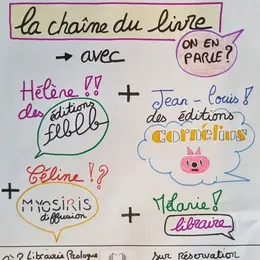 la chaîne du livre
→ avec
ON EN PARLE?
Hélène!!
des éditions
flblb
+
Jean-Louis!
des éditions
cornélius
+
Céline!?
MYOSIRIS
diffusion
+
Mélanie!
libraire
Librairie Prologue
sur réservation